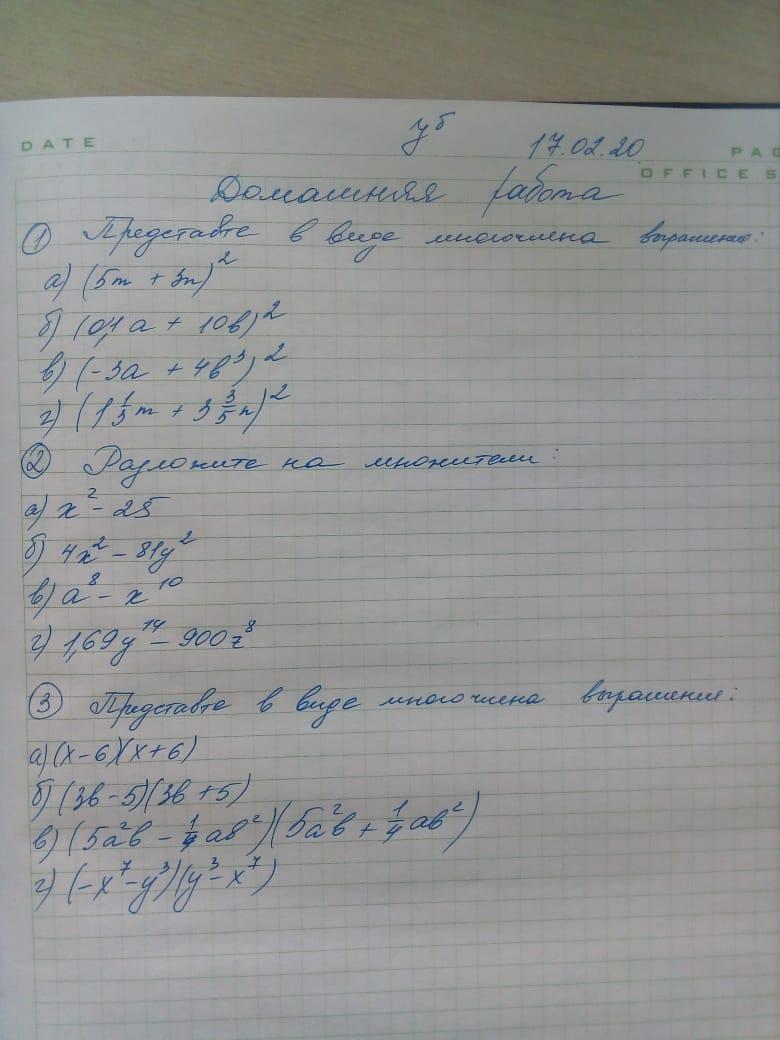 DATE
7б 17.02.20 PAG
OFFICE S
Домашняя работа
① Представте в виде многочлена выражение:
а) (5m + 3n)²
б) (0,1a + 10b)²
в) (-3a + 4b³)²
г) (1 1/3 m + 3 3/5 n)²
② Разложите на множители:
а) x² - 25
б) 4x² - 81y²
в) a⁸ - x¹⁰
г) 1,69y¹⁴ - 900z⁸
③ Представте в виде многочлена выражение:
а) (x-6)(x+6)
б) (3b-5)(3b+5)
в) (5a²b - 1/4 ab²)(5a²b + 1/4 ab²)
г) (-x⁷-y³)(y³-x⁷)